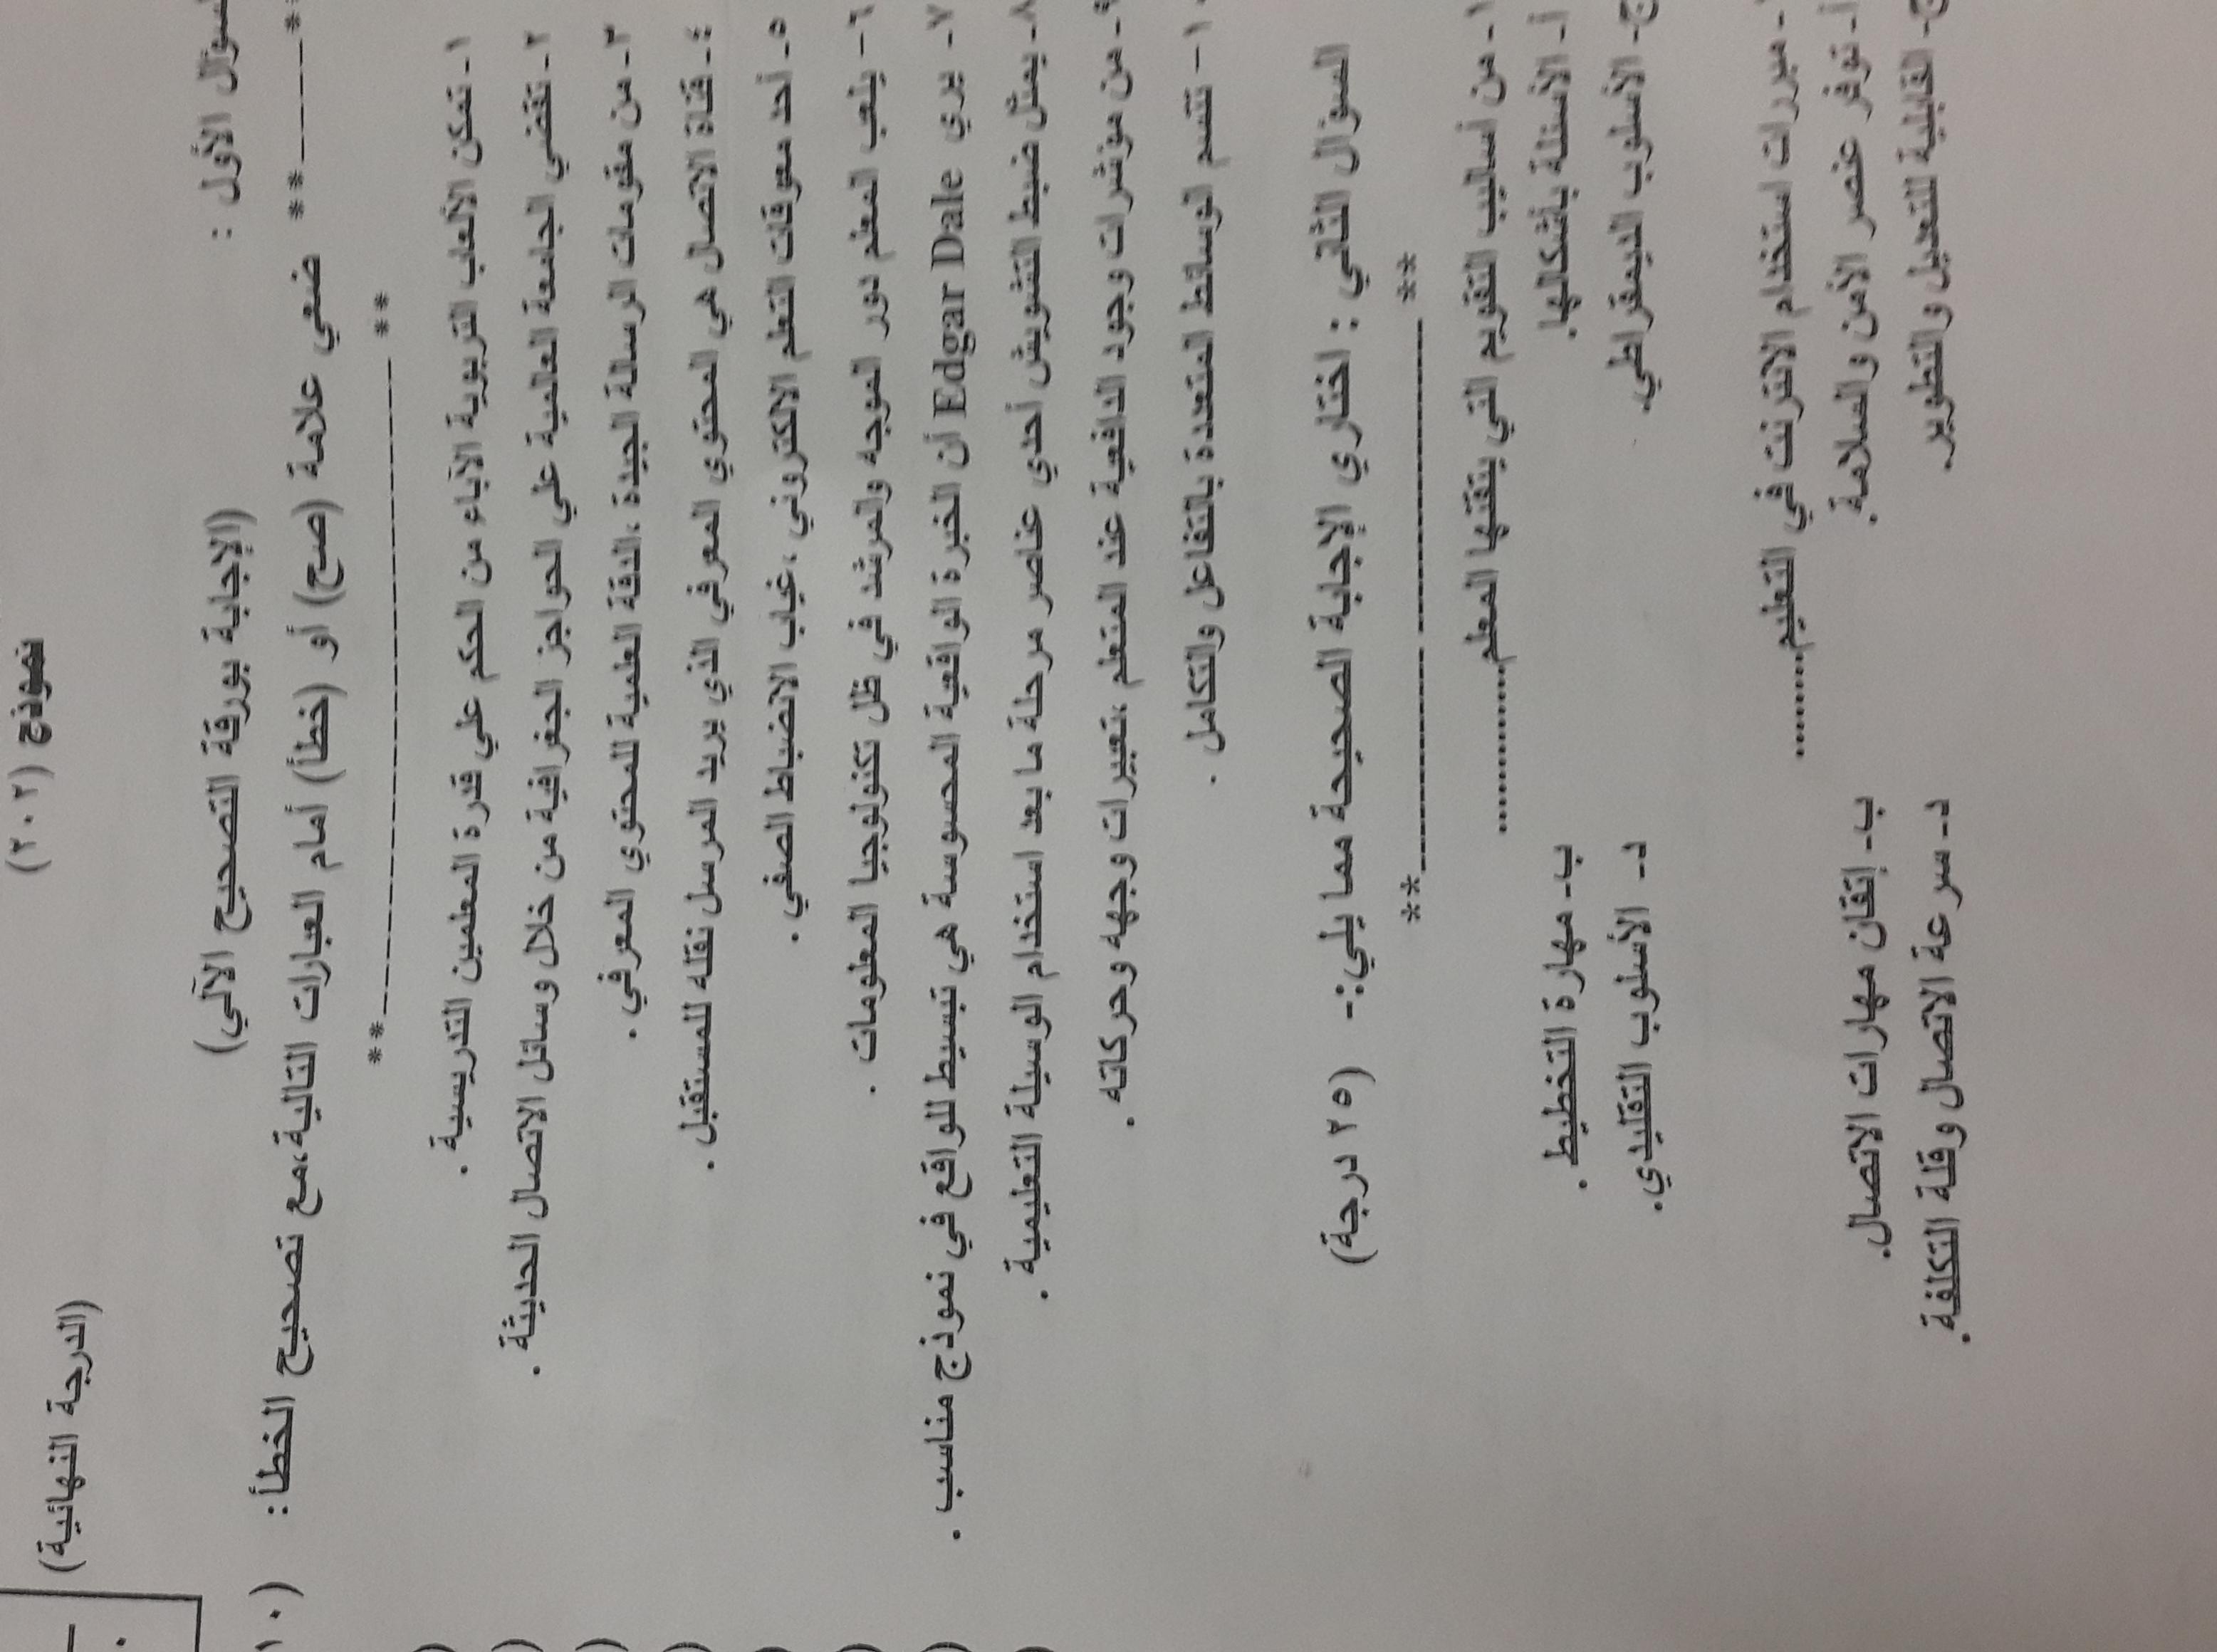 نموذج (٢٠٢)
(الدرجة النهائية)
الأول :
(الإجابة بورقة التصحيح الآلي)
**---- ** ضعي علامة (صح) أو (خطأ) أمام العبارات التالية،مع تصحيح الخطأ: (١٠
**------------------------**
١- تمكن الألعاب التربوية الآباء من الحكم علي قدرة المعلمين التدريسية .
٢- تقضي الجامعة العالمية علي الحواجز الجغرافية من خلال وسائل الاتصال الحديثة .
٣- من مقومات الرسالة الجيدة ،الدقة العلمية للمحتوي المعرفي .
٤- قناة الاتصال هي المحتوي المعرفي الذي يريد المرسل نقله للمستقبل .
٥- أحد معوقات التعلم الالكتروني ،غياب الانضباط الصفي .
٦- يلعب المعلم دور الموجه والمرشد في ظل تكنولوجيا المعلومات .
٧- يري Edgar Dale أن الخبرة الواقعية المحسوسة هي تبسيط للواقع في نموذج مناسب .
٨- يمثل ضبط التشويش أحدي عناصر مرحلة ما بعد استخدام الوسيلة التعليمية .
٩- من مؤشرات وجود الدافعية عند المتعلم ،تعبيرات وجهه وحركاته .
١٠- تتسم الوسائط المتعددة بالتفاعل والتكامل .
السؤال الثاني : اختاري الإجابة الصحيحة مما يلي:- (٢٥ درجة)
**------------------------**
١- من أساليب التقويم التي يتقنها المعلم..............
أ- الأسئلة بأشكالها. ب- مهارة التخطيط .
ج- الأسلوب الديمقراطي. د- الأسلوب التقليدي.
- مبررات استخدام الانترنت في التعليم.........
أ- توفر عنصر الأمن والسلامة. ب- إتقان مهارات الاتصال.
ج- القابلية للتعديل والتطوير. د- سرعة الاتصال وقلة التكلفة.